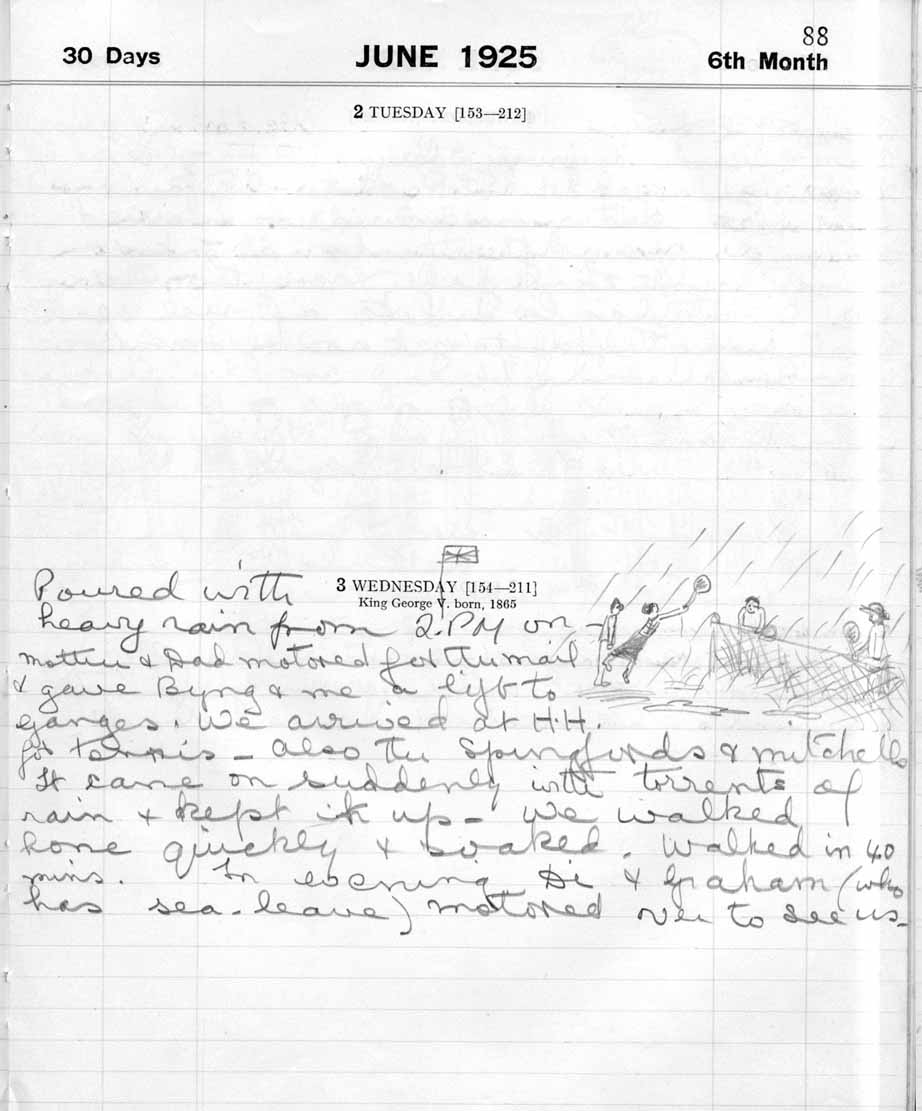 88
30 Days JUNE 1925 6th Month
2 TUESDAY [153—212]
3 WEDNESDAY [154—211]
King George V. born, 1865
Poured with
heavy rain from 2.PM on -
Mother & Dad motored for the mail
& gave Byng & me a lift to
Ganges. We arrived at H.H.
for tennis - also the Springfords & Mitchells
It came on suddenly with torrents of
rain & kept it up - We walked
home quickly & soaked. Walked in 40
mins. In evening Di & Graham (who
has sea-leave) motored over to see us -